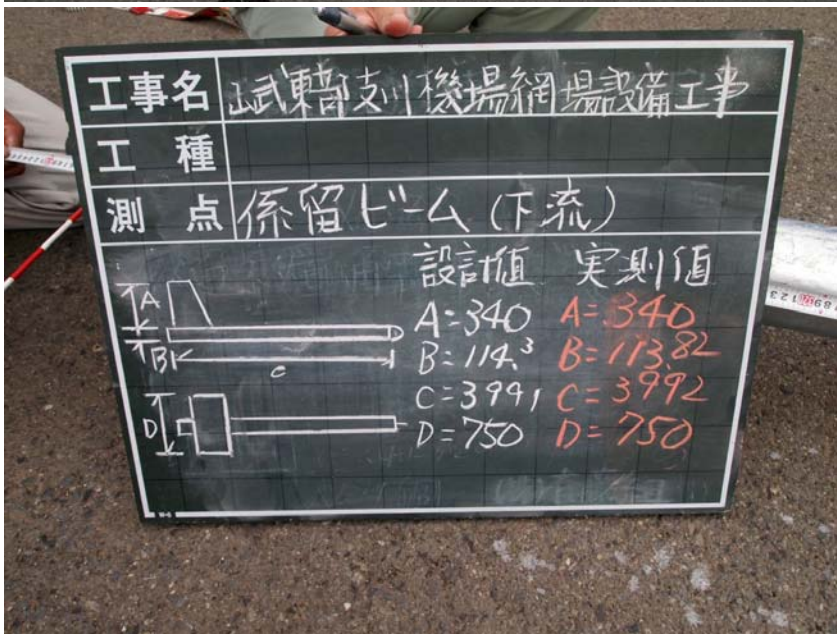 工事名 山武東部支川機場網場設備工事
工 種
測 点 係留ビーム (下流)
設計値 実測値
A A=340 A=340
B B=114.3 B=113.82
C C=3991 C=3992
D D=750 D=750